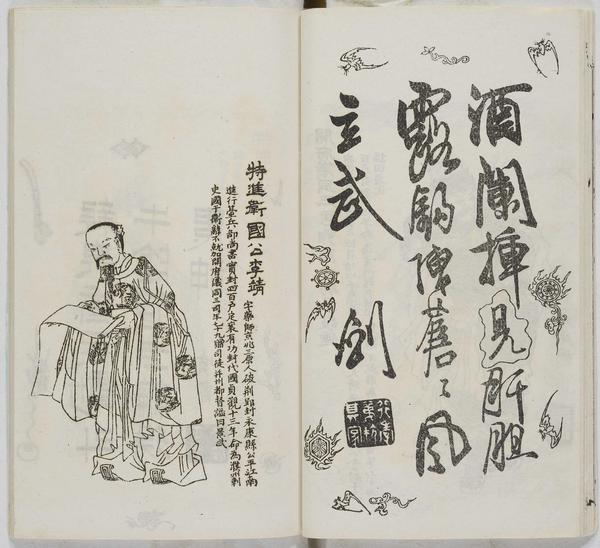 酒闌插見肝胆
露鈎陳蒼〻風
玄武 剑
特進衛國公李靖
字藥師京兆三原人破荆郢封永康縣公平江南
進行臺兵部尚書實封四百户定襄有功封代國貞觀十三年命為濮州刺
史國于衛辭不就加開府儀同三司年七十九贈司徒并州都督謚曰景武